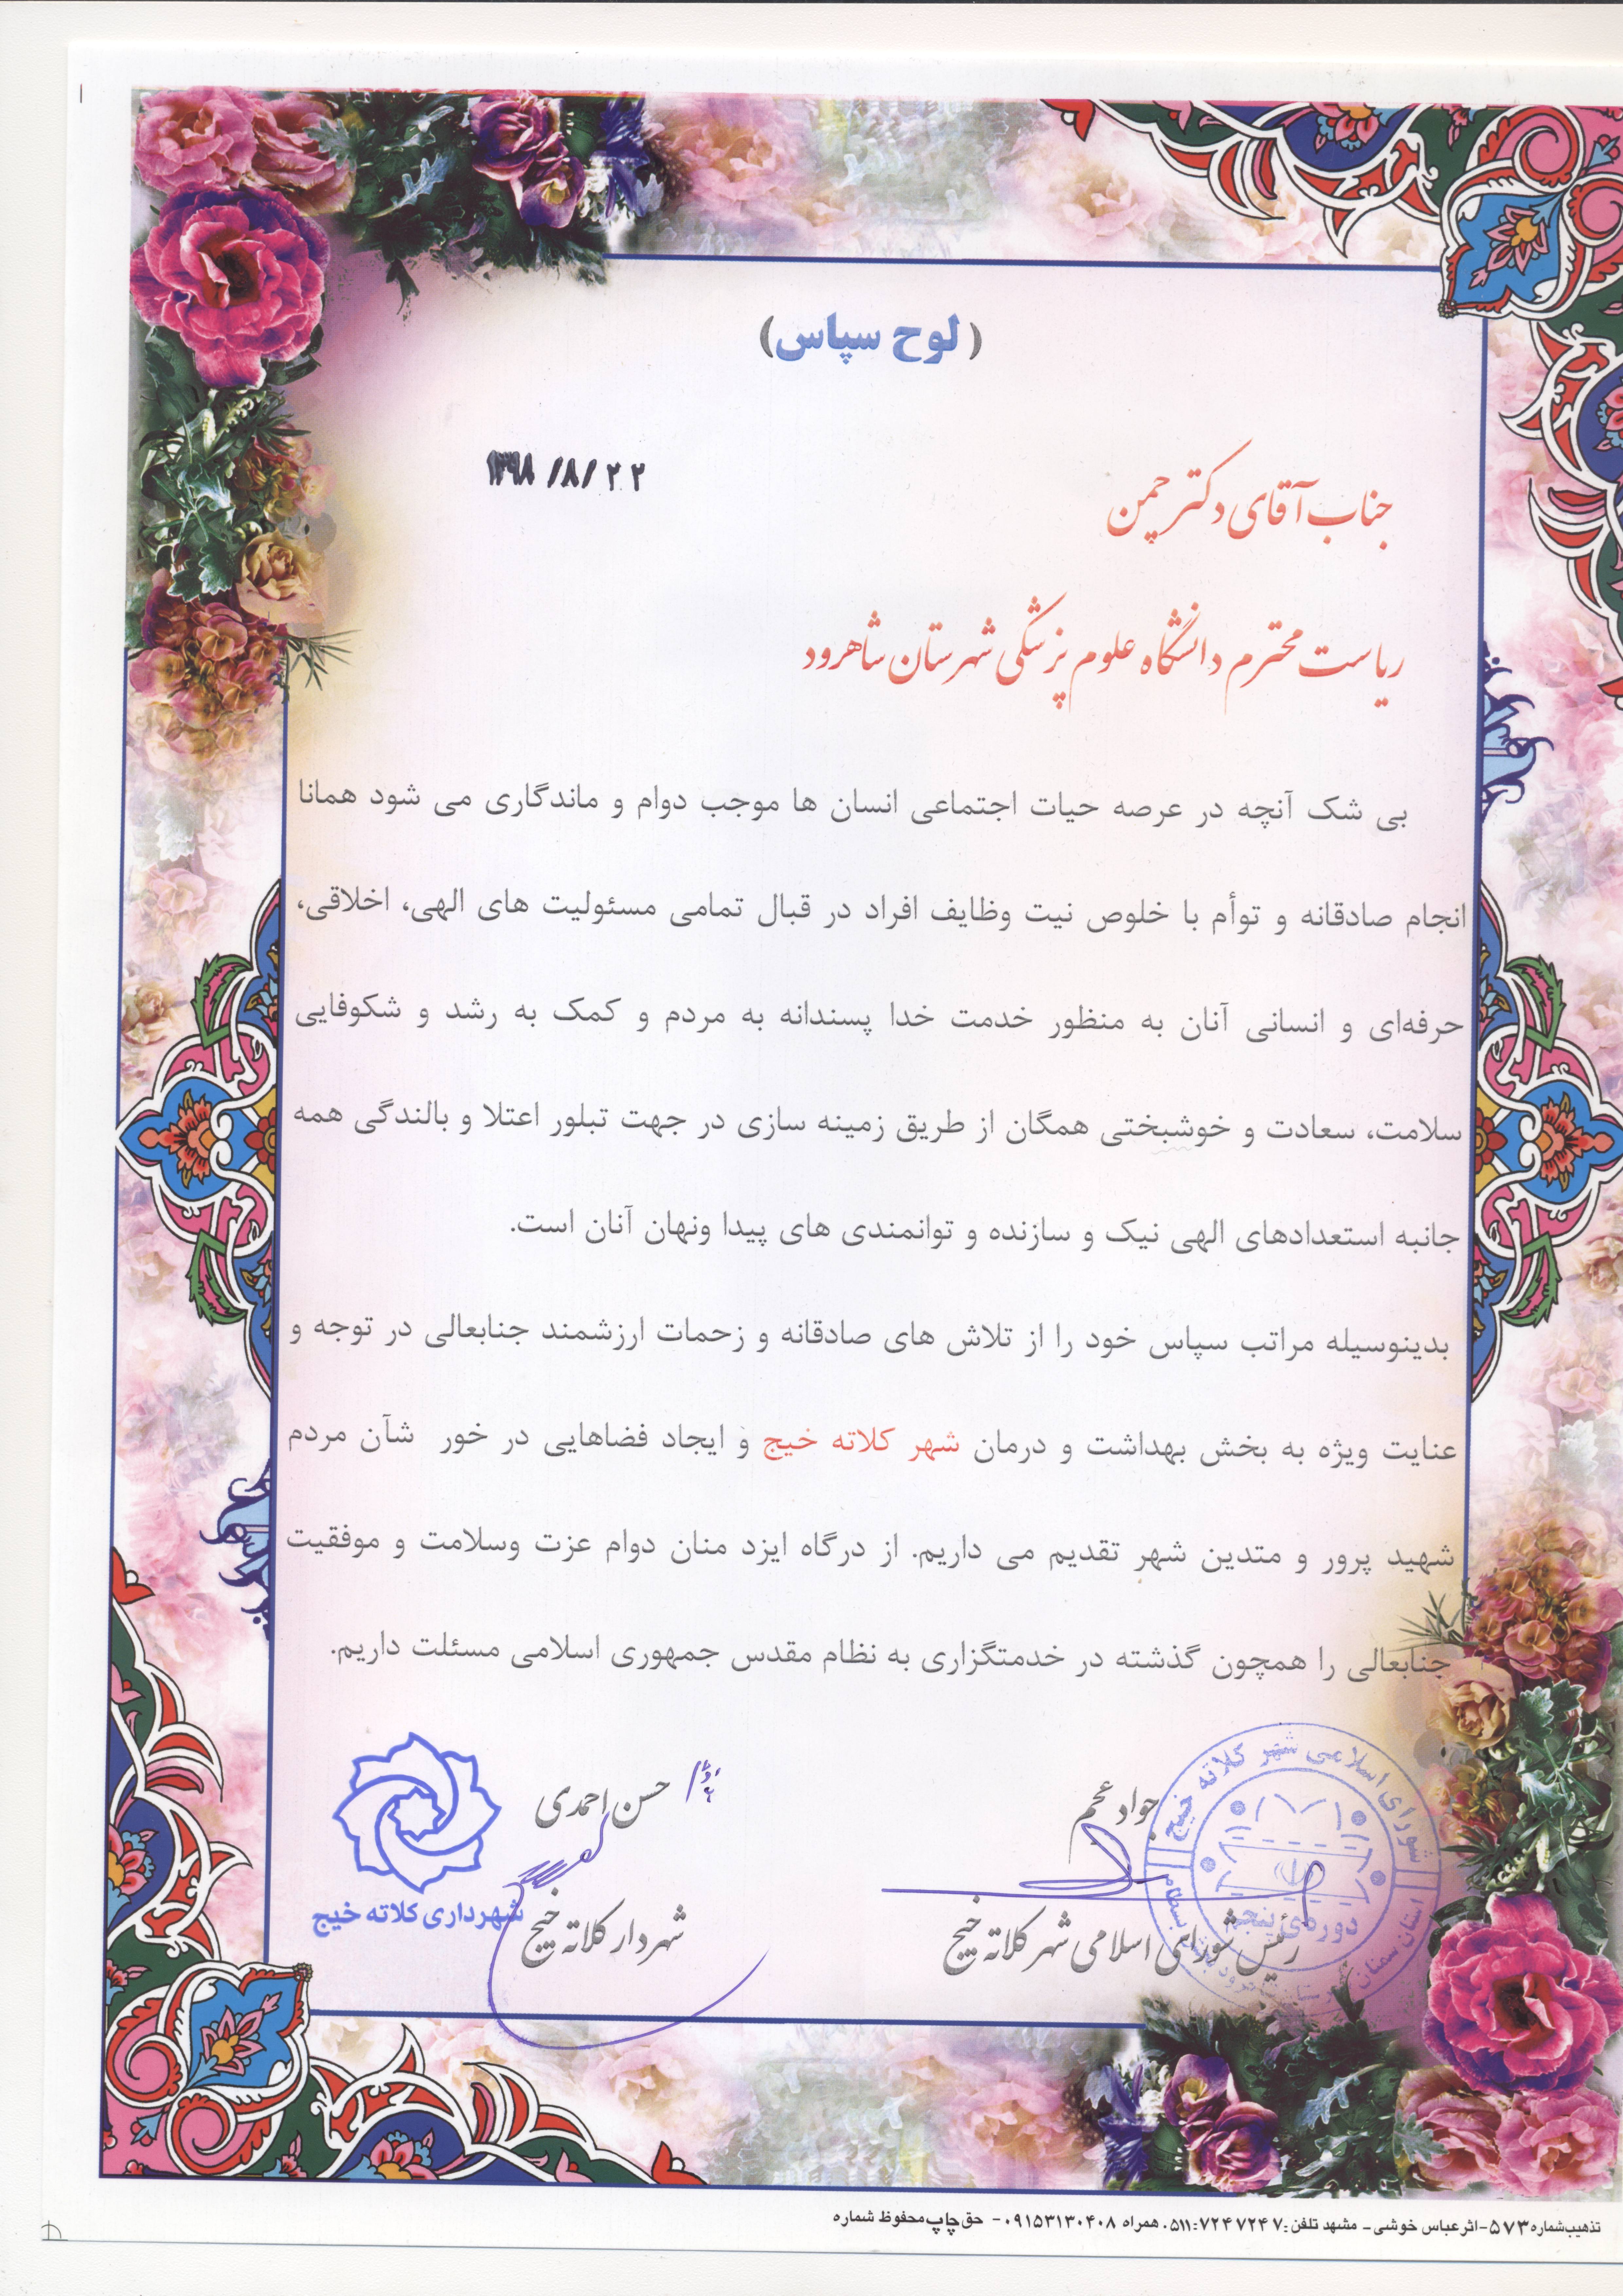 ( لوح سپاس)
۱۳۹۸/۸/۲۲
جناب آقای دکتر چمن
ریاست محترم دانشگاه علوم پزشکی شهرستان شاهرود
بی شک آنچه در عرصه حیات اجتماعی انسان ها موجب دوام و ماندگاری می شود همانا
انجام صادقانه و توأم با خلوص نیت وظایف افراد در قبال تمامی مسئولیت های الهی، اخلاقی،
حرفه‌ای و انسانی آنان به منظور خدمت خدا پسندانه به مردم و کمک به رشد و شکوفایی
سلامت، سعادت و خوشبختی همگان از طریق زمینه سازی در جهت تبلور اعتلا و بالندگی همه
جانبه استعدادهای الهی نیک و سازنده و توانمندی های پیدا ونهان آنان است.
بدینوسیله مراتب سپاس خود را از تلاش های صادقانه و زحمات ارزشمند جنابعالی در توجه و
عنایت ویژه به بخش بهداشت و درمان شهر کلاته خیج و ایجاد فضاهایی در خور شأن مردم
شهید پرور و متدین شهر تقدیم می داریم. از درگاه ایزد منان دوام عزت وسلامت و موفقیت
جنابعالی را همچون گذشته در خدمتگزاری به نظام مقدس جمهوری اسلامی مسئلت داریم.
جواد عجم
رئیس شورای اسلامی شهر کلاته خیج
شورای اسلامی شهر کلاته خیج
دوره‌ی پنجم
استان سمنان
بسطام
حسن احمدی
شهردار کلاته خیج
شهرداری کلاته خیج
تذهیب شماره ۵۷۳-اثر عباس خوشی - مشهد تلفن: ۷۲۴۷۲۴۷:۵۱۱. همراه ۰۹۱۵۳۱۳۰۴۰۸- حق چاپ محفوظ شماره